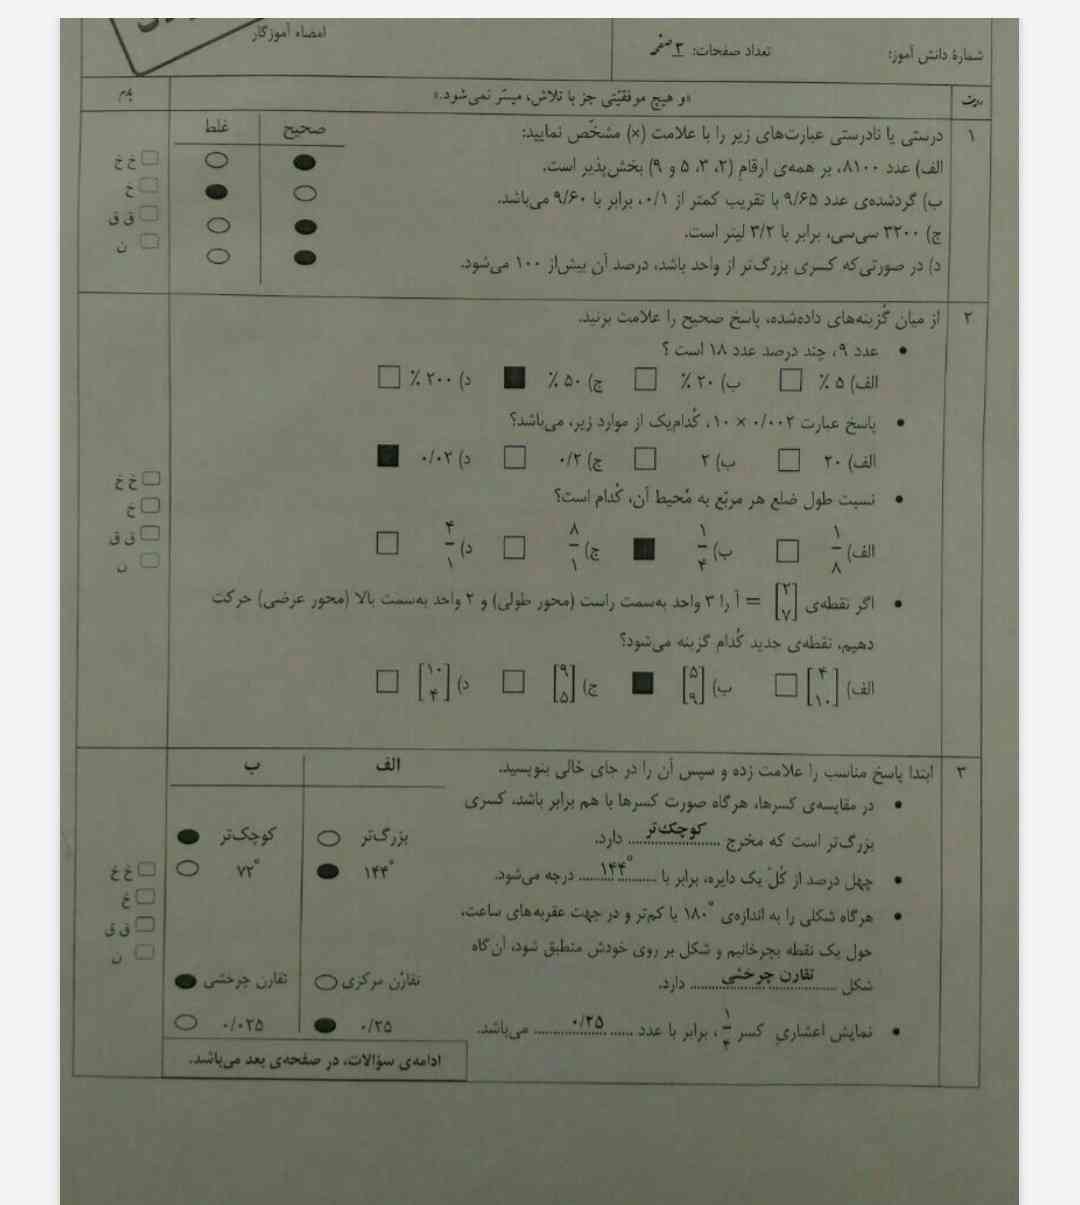 امضاء آموزگار
شمارهٔ دانش آموز:
تعداد صفحات: ۳ صفحه
ردیف
«و هیچ موفقیّتی جز با تلاش، میسّر نمی‌شود.»
بارم
۱
درستی یا نادرستی عبارت‌های زیر را با علامت (×) مشخّص نمایید:
صحیح
غلط
الف) عدد ۸۱۰۰، بر همه‌ی ارقام (۲، ۳، ۵ و ۹) بخش‌پذیر است.
ب) گردشده‌ی عدد ۹/۶۵ با تقریب کمتر از ۰/۱، برابر با ۹/۶۰ می‌باشد.
ج) ۳۲۰۰ سی‌سی، برابر با ۳/۲ لیتر است.
د) در صورتی‌که کسری بزرگ‌تر از واحد باشد، درصد آن بیش‌از ۱۰۰ می‌شود.
خ خ
خ
ق ق
ن
۲
از میان گزینه‌های داده‌شده، پاسخ صحیح را علامت بزنید.
• عدد ۹، چند درصد عدد ۱۸ است ؟
الف) ۵ ٪ ب) ۲۰ ٪ ج) ۵۰ ٪ د) ۲۰۰ ٪
• پاسخ عبارت ۰/۰۰۲ × ۱۰، کُدام‌یک از موارد زیر، می‌باشد؟
الف) ۲۰ ب) ۲ ج) ۰/۲ د) ۰/۰۲
• نسبت طول ضلع هر مربّع به مُحیط آن، کُدام است؟
الف) ۱/۸ ب) ۱/۴ ج) ۸/۱ د) ۴/۱
• اگر نقطه‌ی [۲ ۷] = آ را ۳ واحد به‌سمت راست (محور طولی) و ۲ واحد به‌سمت بالا (محور عرضی) حرکت
دهیم، نقطه‌ی جدید کُدام گزینه می‌شود؟
الف) [۴ ۱۰] ب) [۵ ۹] ج) [۹ ۵] د) [۱۰ ۴]
خ خ
خ
ق ق
ن
۳
ابتدا پاسخ مناسب را علامت زده و سپس آن را در جای خالی بنویسید.
الف
ب
• در مقایسه‌ی کسرها، هرگاه صورت کسرها با هم برابر باشد، کسری
بزرگ‌تر است که مخرج کوچک‌تر دارد.
بزرگ‌تر
کوچک‌تر
• چهل درصد از کُلّ یک دایره، برابر با ۱۴۴° درجه می‌شود.
۱۴۴°
۷۲°
• هرگاه شکلی را به اندازه‌ی ۱۸۰° یا کم‌تر و در جهت عقربه‌های ساعت،
حول یک نقطه بچرخانیم و شکل بر روی خودش منطبق شود، آن‌گاه
شکل تقارن چرخشی دارد.
تقارُن مرکزی
تقارن چرخشی
• نمایش اعشاریِ کسر ۱/۴، برابر با عدد ۰/۲۵ می‌باشد.
۰/۲۵
۰/۰۲۵
خ خ
خ
ق ق
ن
ادامه‌ی سؤالات، در صفحه‌ی بعد می‌باشد.